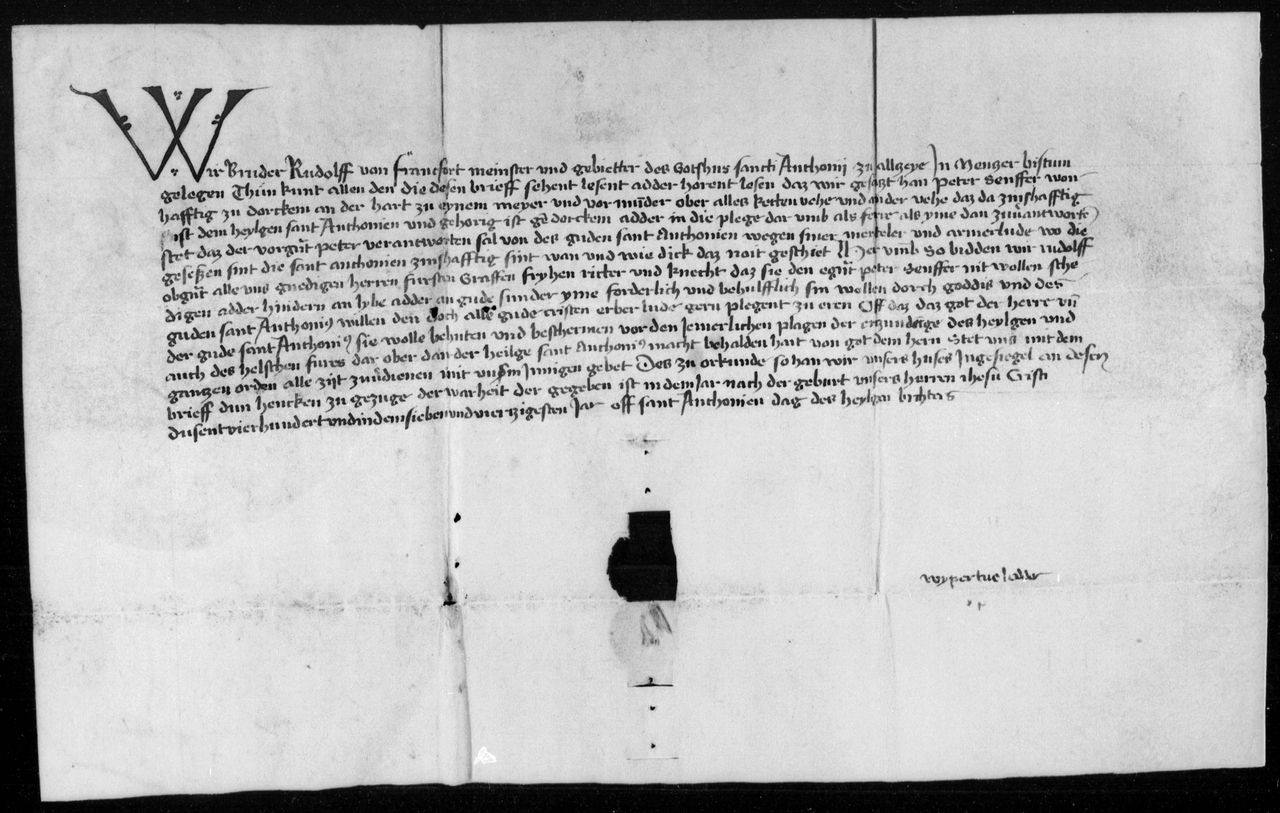 Wir Bruder Rudolff von Franckfort meinster und gebietter des Gotshus sancti Anthonij zu altzeye In Mentzer bistum
gelegen Thun kunt allen den die desen brieff sehent lesent adder horent lesen daz wir gesatzt han Peter Senffer won-
hafftig zu dorckem an der hart zu eynem meyer und vormu͞der ober alles ketten vehe und ander vehe daz da zinshafftig
ist dem heylgen sant Anthonien und gehorig ist ge dorckem adder in die plege dar vmb als ferre als yme dan zuuantworte
stet daz der vorgut peter verantworten sal von des guden sant Anthonien wegen siner merteler und armerlude wo die
geseßen sint die sant anthonien zinshafftig sint wan und wie dick daz noit geschiet Her vmb So bidden wir rudolff
obgnt alle uns gnedigen herren fursten Graffen fryhen ritter und knecht daz sie den egnt peter Senffer nit wollen sche
digen adder hindern an lybe adder an gude sunder yme forderlich und behulfflich sin wollen dorch goddis und des
guden sant Anthonius willen den doch alle gude cristen erber lude gern plegent zu eren Off daz daz got der herre vn
der gude sant Anthonius sie wolle behuten und beschermen vor den Jemerlichen plagen der entzundige des heylgen und
auch des helschen fures dar ober dan der heilge sant Anthonius macht behalden hait von got dem hern Stet uns mit dem
gantzen orden alle zijt zuuerdienen mit vnsm Innigen gebet Des zu orkunde so han wir unsers huses Ingesiegel an desen
brieff dun hencken zu gezuge der warheit der gegeben ist in dem Jar nach der geburt unsers herren ihesu Cristi
dusent vierhundert und in dem sieben und viertzigesten Jar off sant Anthonien dag des heylgen bichters